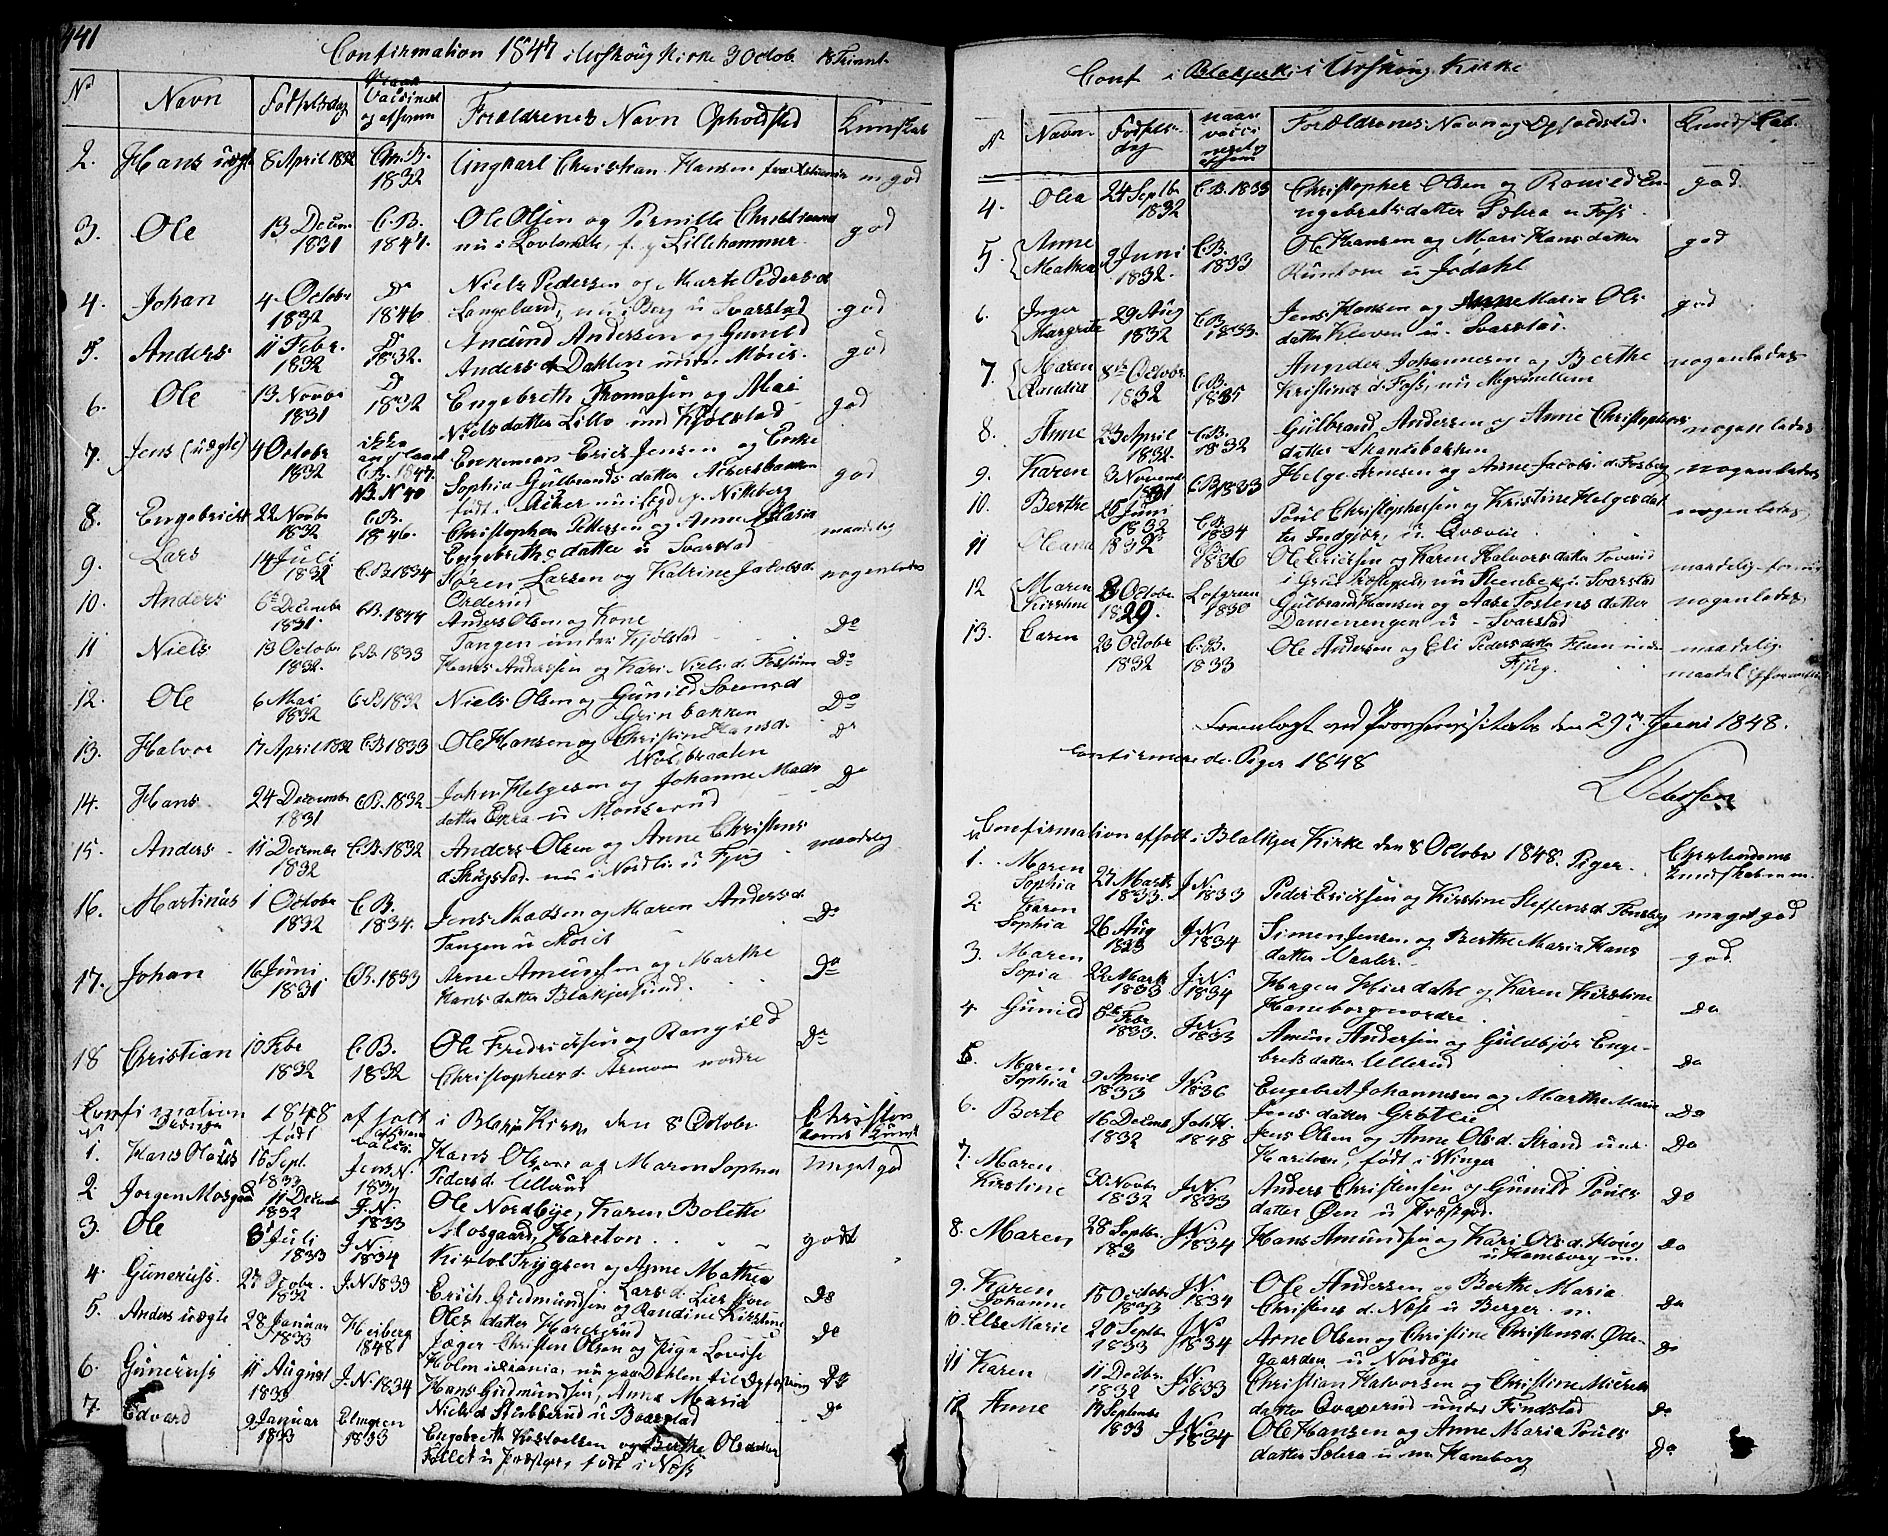 441
Confirmation 1847 i Urskoug Kirke 3 Octob. 18 Trinit.
No Navn Fødselsdag Naar Vaccineret og af hvem Forældrenes Navn Opholdsted Kunskab
2. Hans uægte 8 April 1832 Chr. B. 1832 Ungkarl Christian Hansen fra Xstiania m god
3. Ole 13 Decem. 1831 C.B. 1847. Ole Olsen og Pernille Christiansd
nu i Lovlande, f. p. Lillehammer. god
4. Johan 4 Octobr 1832 Do 1846 Niels Pedersen og Marte Pedersd
Langeland, nu i Berg u Svarstad god
5. Anders 11 Febr. 1832 D 1832. Amund Andersen og Gunild
Anders d Dahlen under Mørie. god
6. Ole 13 Novbr 1831 D 1832 Engebreth Thomasen og Mari
Nielsdatter Lillo und Kjølstad god
7. Jens (uægte) 4 Octobr 1832 ikke anslaaet C.B. 1847 N.B. N 40 Enkeman Erick Jensen og Enke
Sophia Gulbrands datter Aabersbakken
født i Aker u p. Nitteberg god
8. Engebrict 22 Novbr 1832 C.B. 1846. Christopher Pettersen og Anne Maria
Engebreths datter u Svarstad maadelig
9. Lars 14 Juli 1832 C.B. 1834 Søren Larsen og Katrine Jacobsd
Orderud nogenledes
10. Anders 6te Decembr 1831 C.B. 1844 Anders Olsen og Kone
Tangen under Kjølstad Do
11 Niels 13 Octobr 1832. C.B. 1833 Hans Anderssen og Kari Niels d. Fossum Do
12. Ole 6 Mai 1832 C.B 1832 Niels Olsen og Gunild Sørensd
Grinbakken Do
13. Halvor 17 April 1832 C.B 1833 Ole Hansen og Christine Hansd.
Nordbraaten Do
14. Hans 24 Decembr 1831 C.B. 1832 John Helgesen og Johanne Mads
datter Opra u Monserud Do
15. Anders 11 Decembr 1832 C.B. 1832 Anders Olsen og Anne Christens
d. Skugstad nu i Nordli u Fjug maadelig
16. Martinus 1 Octobr 1832 C.B. 1834. Jens Madsen og Maren Andersd
Tangen u Morie Do
17. Johan 16 Juni 1831 C.B. 1833 Arne Amundsen og Marthe
Hans datter Blakjersund. Do
18 Christian 10 Febr 1832 C.B. 1832 Ole Fredricksen og Rangild
Christophers d. Aremon nordre Do
Confirmation 1848 af holt i Blakjer Kirke den 8 Octobr. Christen
N Drenge født af hvem vacci. doms Kundsk
1. Hans Olaus 16 Sept. 1833 Jens N. 1834 Hans Olsen og Maren Sophia
Peders d. Ullerud meget god
2. Jørgen Mosgaard 11 Decembr 1832 J.N. 1833 Ole Nordbye, Karen Bolette
Mosgaard, Hareton
3. Ole 8 Juli 1833 J.N. 1834 Kirstol Trygsen og Anne Mathea
Lars d. Lier store godt
4. Gunerius. 27 Octobr. 1832 J.N 1833 Erich Gudmundsen og Randine Kirstine
Oles datter Haneborud Do
5. Anders uægte 28 Januar 1833 Heiberg 1848 Jæger Christen Olsen og Pige Lovise
Holm i Xrania, nu paa Dahlen til Opfostring Do
6. Gunerius 11 August 1833 J.N. 1834 Hans Gudmundsen, Anne Maria
Niels d. Stubberud u Boorstad Do
7. Edvard 9 Januar 1833 Elmgren 1833 Engebreth Kirstolsen og Berthe Olsdatter
Fallet u Præstgr., født i Næs Do
Conf. i Blakjer k. i Urskoug Kirke
N Navn. Fødsels-dag naar vaccineret og af hvem Forældrenes Navn og Opholdsted. Kundskab.
4. Olea 24 Septb 1832 C.B. 1833 Christopher Olsen og Ronild En-
gebretsdatter Sæbra u Foss. god.
5. Anne Mathea 2 Juni 1832. C.B. 1833 Ole Hansen og Mari Hansdatter
Runtom u Jødahl god
6. Inger Margrete 29 Aug 1832 C.B. 1833. Jens Hansen og Anne Maria Ols
datter Kleven u. Svarstad. god
7. Maren 8de Octobr. 1832 C.B. 1835 Johannesen og Berthe
Kristines d. Foss, nu Mysmellem nogenledes
8. Anne 23 April 1832. C.B. 1832 Gulbrand Andersen og Anne Christophers
datter Skandsbakken nogenledes
9. Karen 3 Novemb 1831 C.B 1833 Helge Arnesen og Anne Jacobs d. Fosberg nogenledes
10. Berthe 25 Juni 1832 C.B. 1834 Poul Christophersen og Kristine Helgesdat
ter Indgjor, u. Qvævlie nogenledes
11 Oleana 1832 Do 1836 Ole Ericksen og Karen Halvors datter Toverud
i Grue Præstegjeld, nu Steenbek i Svarstad maadelig
12 Maren Kirstine 8 Octobr 1829. Lofgreen 1830 Gulbrand Hansen og Aase Tostens datter
Damenengen u Svarstad nogenledes
13. Caren 23 Octobr 1832 C.B. 1833 Ole Andersen og Eli Peders datter Floen under
Fjug. maadelig
Fremlagt ved Provsevisitats den 29de Juni 1848.
Confirmerede Piger 1848
Confirmation afholt i Blakjer Kirke den 8 Octobr 1848. Piger. Christendoms
N Kundskab m m.
1. Maren Sophia 27 Marts 1833. J.N. 1833 Peder Ericksen og Kirstine Steffens d. Tonsberg meget god
2. Karen Sophia 26 Aug 1833 J.N 1834 Simen Jensen og Berthe Maria Hans
datter Vaaler. god.
3. Maren Sopia 22 Marts 1833 J.N. 1834 Hagen Hierdahl og Karen Kirstine
Haneborg nordre. Do
4 Gunild 8de Febr 1833. J.N. 1833 Amund Andersen og Guldbjør Enge-
brets datter Ullerud Do
5. Maren Sophia 9 April 1833 J.N. 1836 Engebret Johannesen og Marthe Marie
Jens datter Grøtlie Do
6. Berte 16 Decmb 1832 Joh H. 1848 Jens Olsen og Anne Ols d. Strand und.
Haretom, født i Winger Do
7. Maren Kirstine 30 Novbr 1832 J.N. 1833 Anders Christensen og Gunild Pouls
datter Øen u Præstgd. Do
8. Maren 28 Septbr 183 J.N. 1834 Hans Amundsen og Kari Ols d. Houg
u Haneborg n. Do
9. Karen Johanne 15 Octobr 1833 J.N. 1834 Ole Andersen og Berthe Maria
Christens d. Næss u Berger n. Do
10. Else Marie 20 Septbr 1833 J.N. 1834 Arne Olsen og Christine Christensd. Øde-
gaarden u Nordbye Do
11 Karen 11 Decbr. 1832 J.N. 1833 Christian Halvorsen og Christine Michels
datter Qvaperud under Findstad Do
12 Anne 14 Septembr 1833 J.N. 1834 Ole Hansen og Anne Maria Pouls
datter Sæbra u nu Haneborg Do